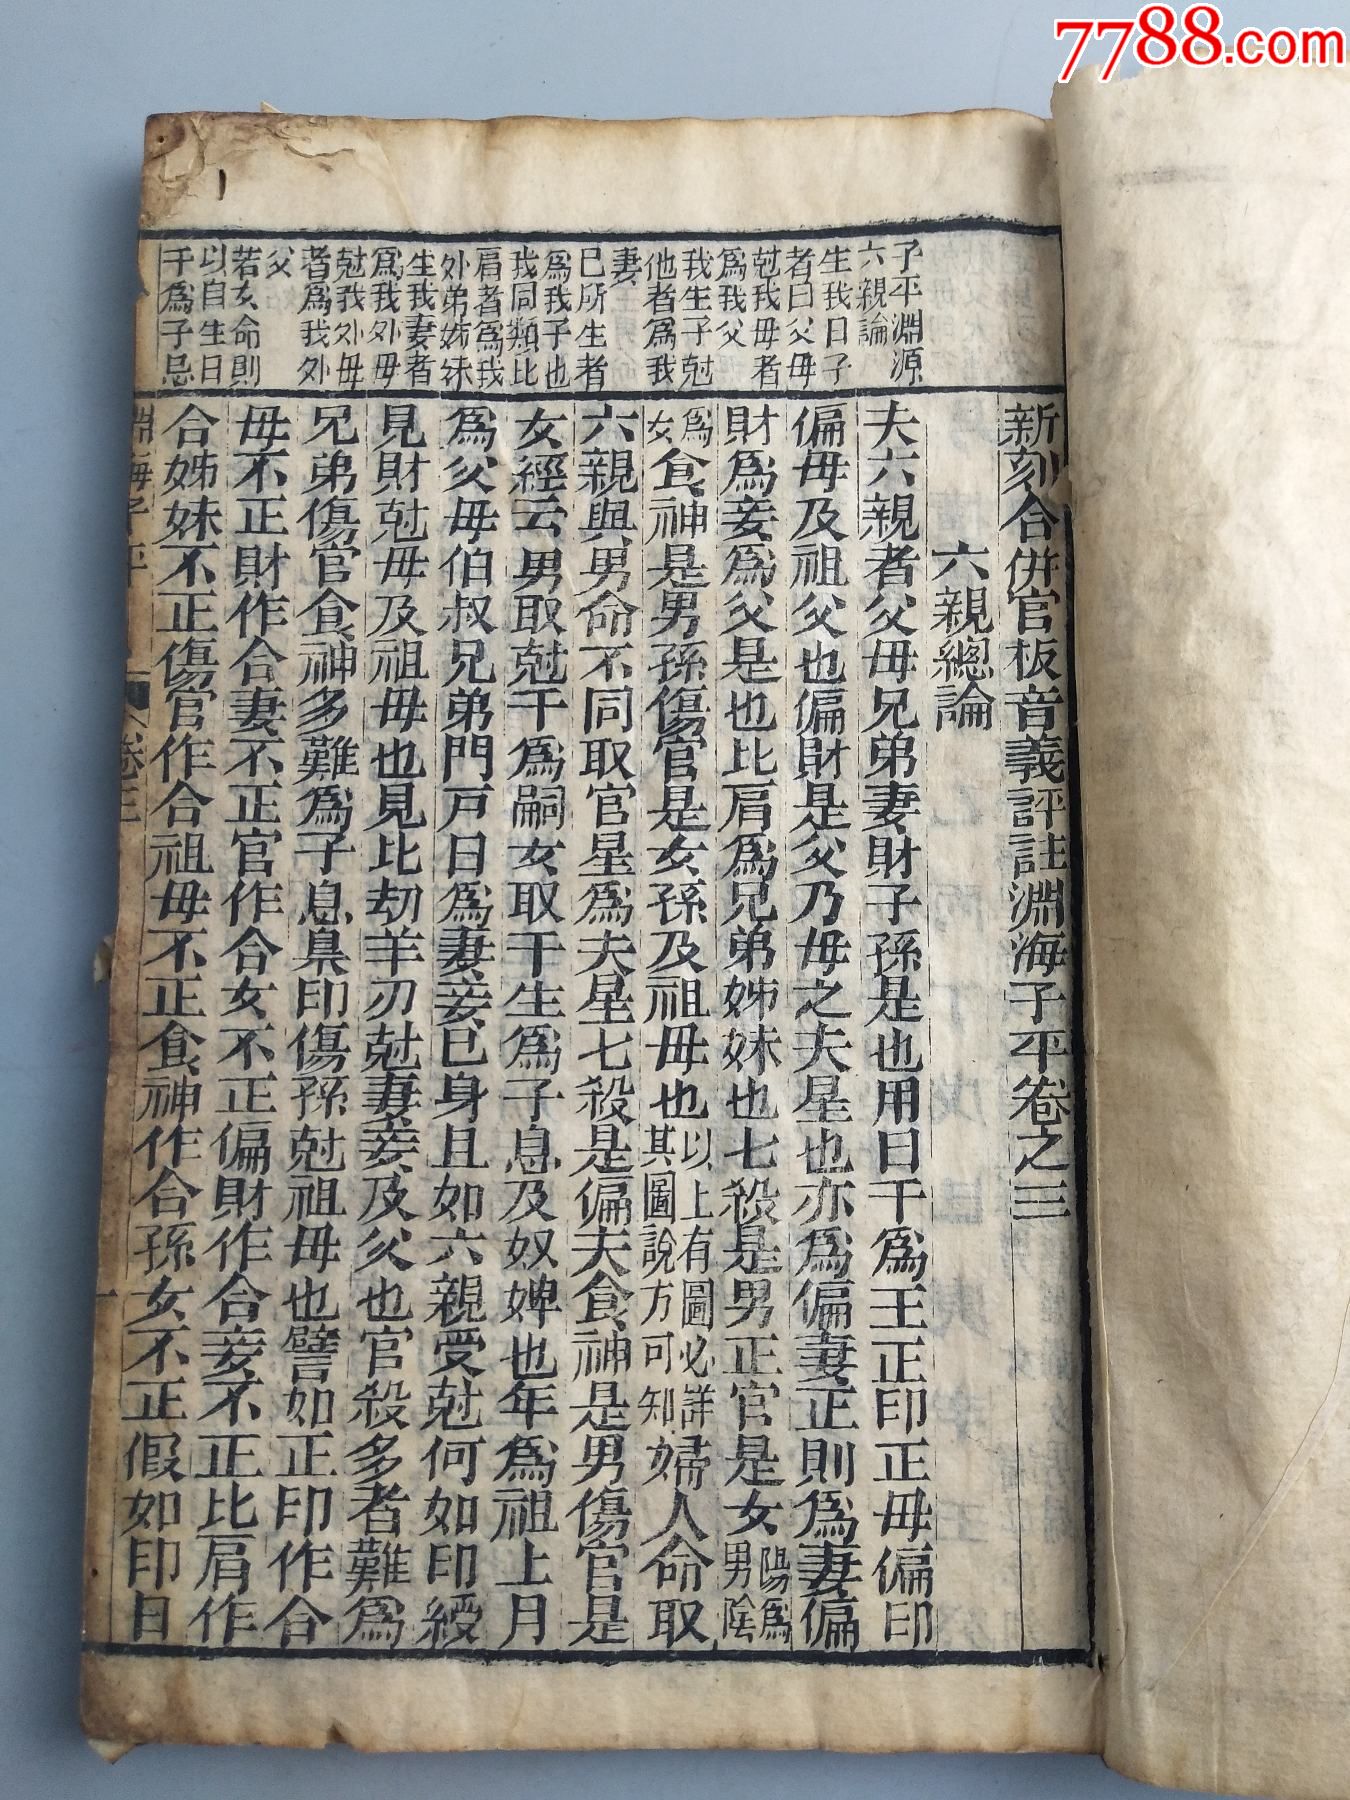 7788.com
子平淵源
六親論
生我曰子
者曰父毋
尅我毋者
為我父
我生子尅
他者為我
妻
巳所生者
為我子也
我同類比
肩者為我
外弟姊妹
生我妻者
為我外毋
尅我外毋
者為我外
父
若女命則
以自生日
干為子忌
新刻合併官板音義評註淵海子平卷之三
六親總論
夫六親者父毋兄弟妻財子孫是也用日干為王正印正毋偏印
偏毋及祖父也偏財是父乃毋之夫星也亦為偏妻正則為妻偏
財為妾為父是也比肩為兄弟姊妹也七殺是男正官是女陽為男陰
為女食神是男孫傷官是女孫及祖毋也以上有圖必詳其圖說方可知婦人命取
六親與男命不同取官星為夫星七殺是偏夫食神是男傷官是
女經云男取尅干為嗣女取干生為子息及奴婢也年為祖上月
為父毋伯叔兄弟門戸日為妻妾已身且如六親受尅何如印綬
見財尅毋及祖毋也見比刼羊刃尅妻妾及父也官殺多者難為
兄弟傷官食神多難為子息梟印傷孫尅祖毋也譬如正印作合
毋不正財作合妻不正官作合女不正偏財作合妾不正比肩作
合姊妹不正傷官作合祖毋不正食神作合孫女不正假如印日
淵海子平 卷三 一